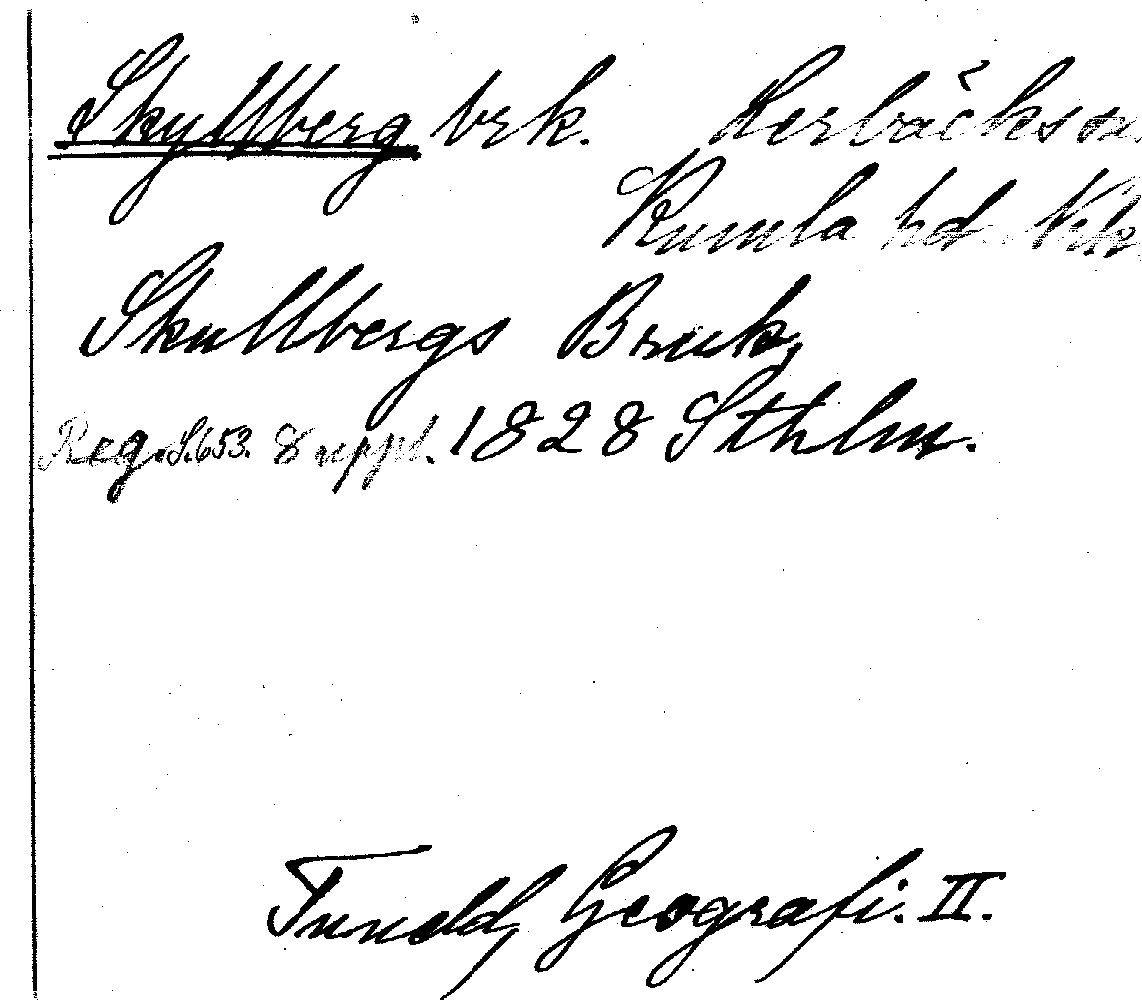 Skyllberg brk. Lerbäcks sn.
Kumla hd. Nke.
Skullbergs Bruk,
Reg. S. 653. Suppl. 1828 Sthlm.
Tuneld, Geografi. II.